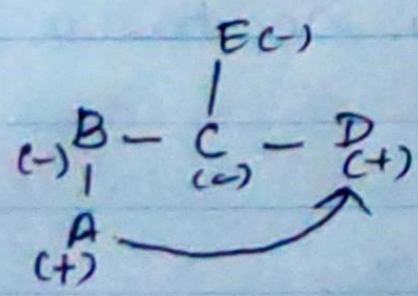 E (-)
(-) B - C - D
(-) (+)
A
(+)